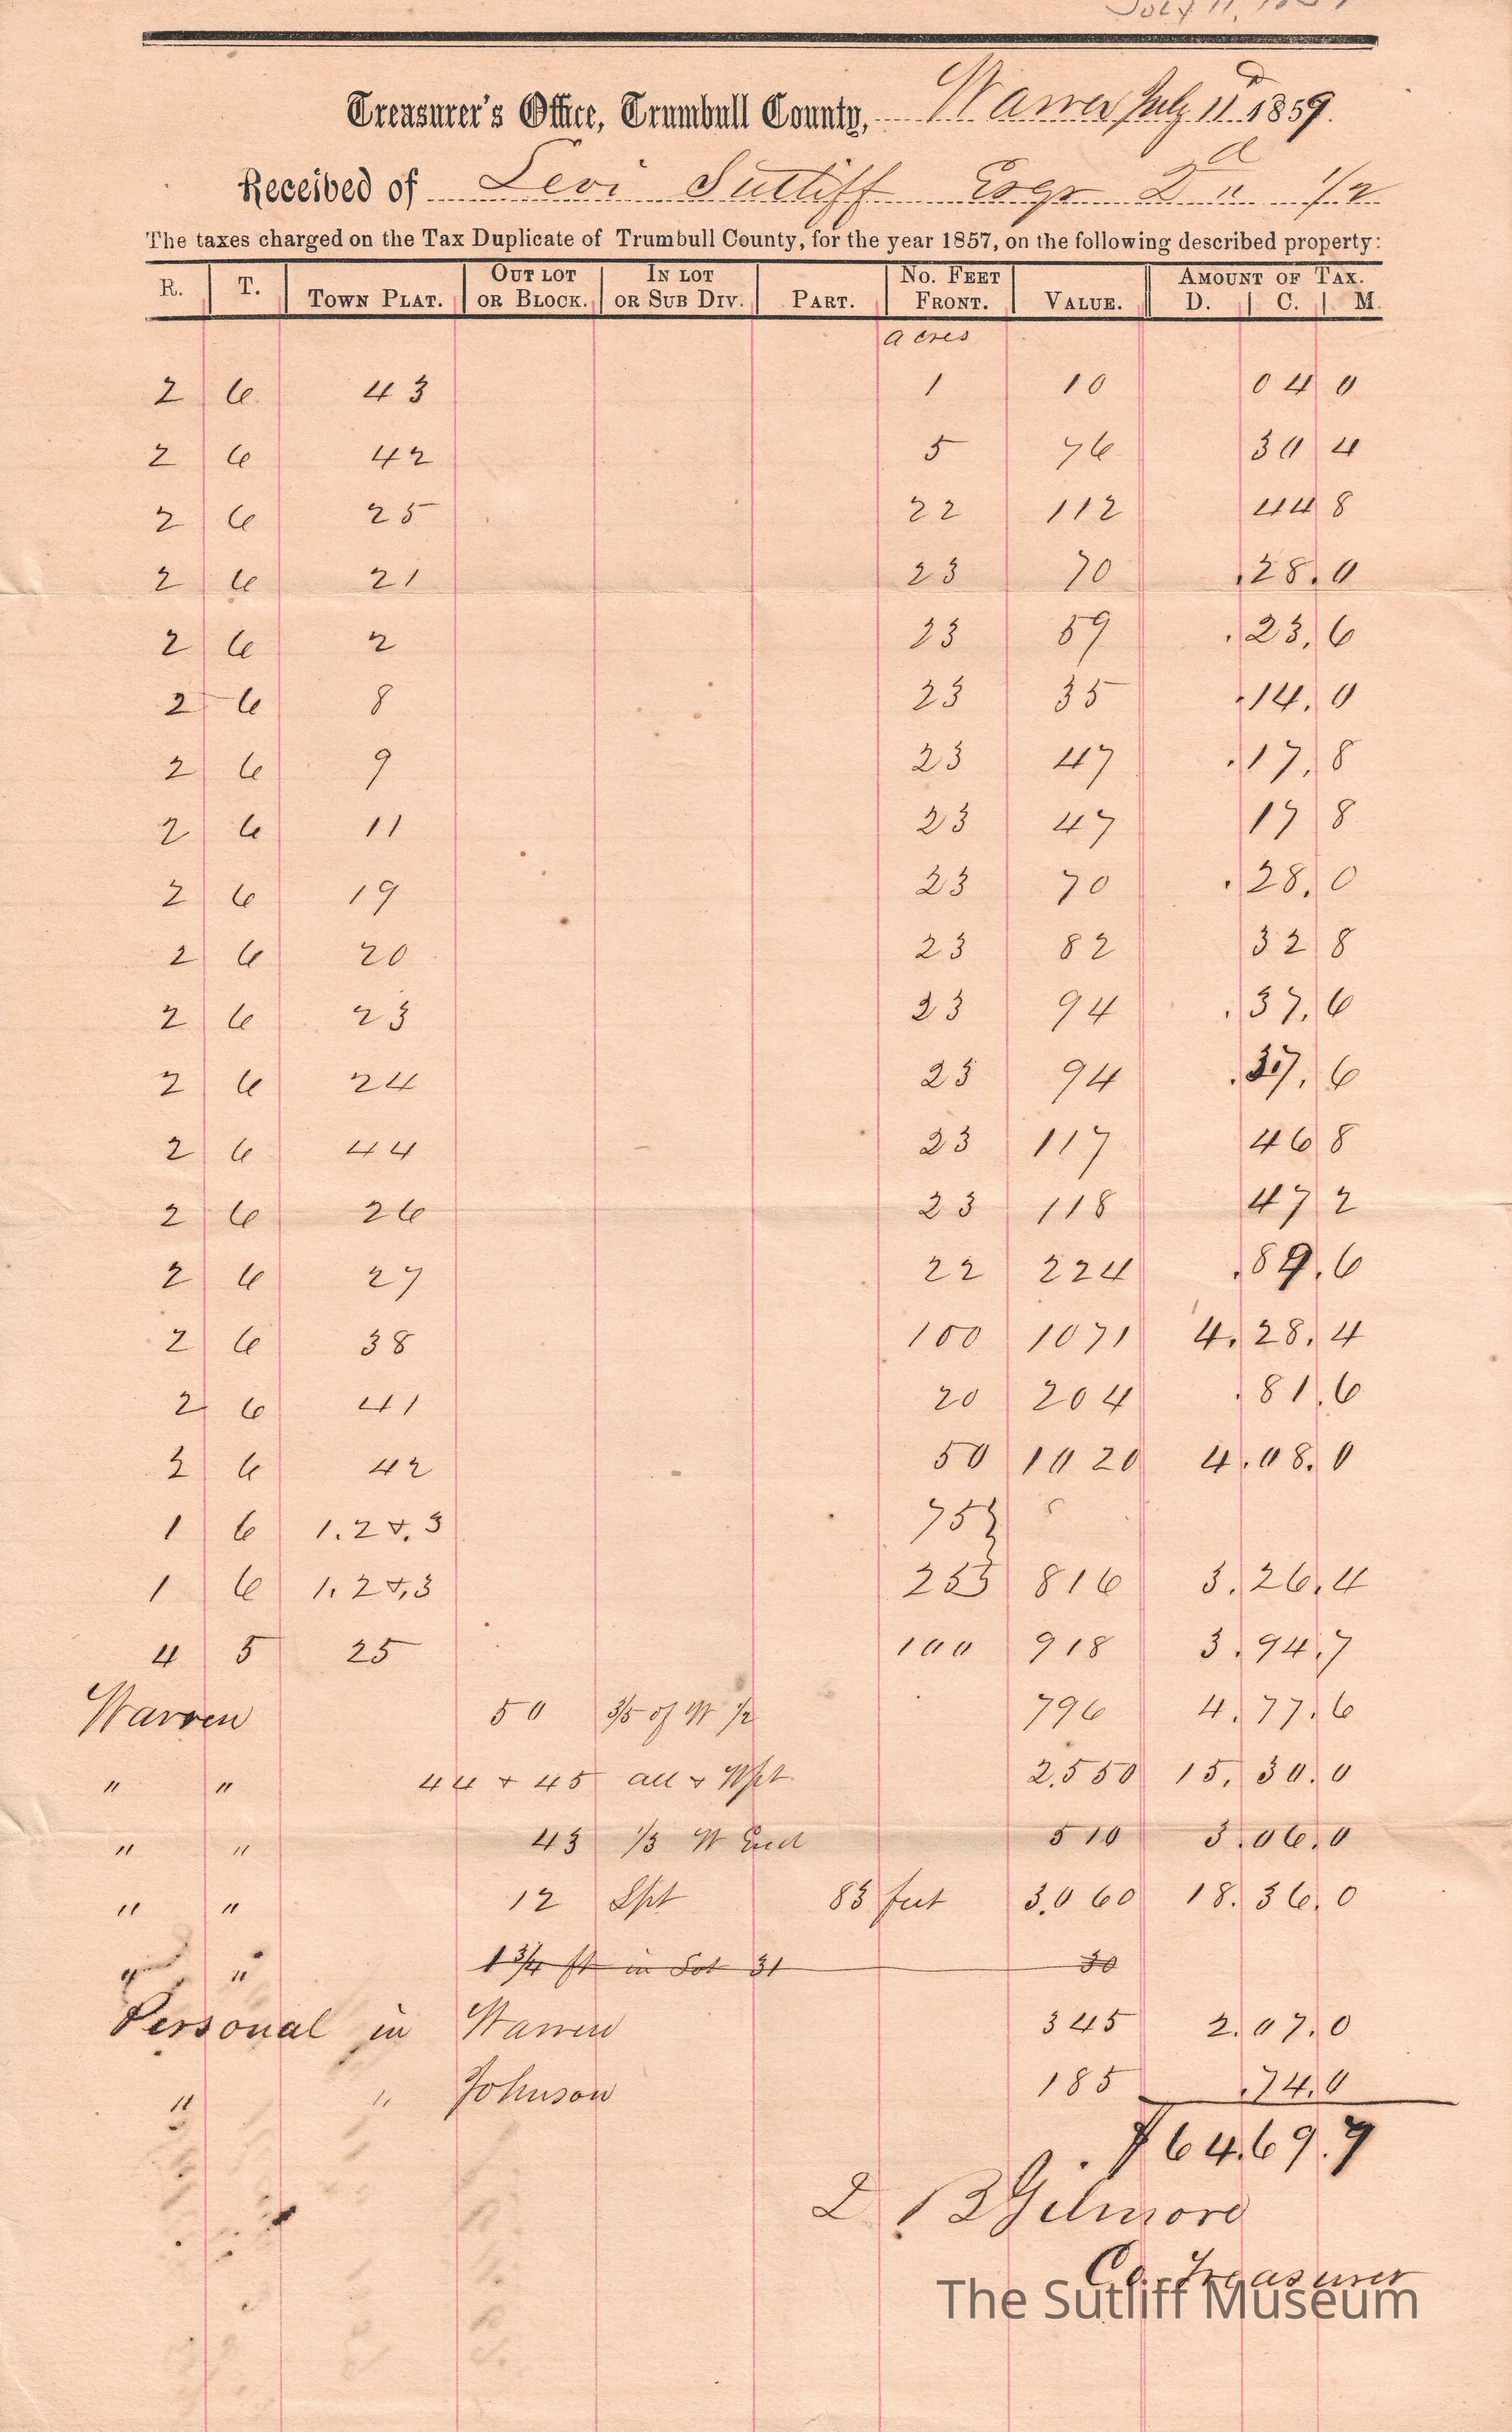 July 11, 1859
Treasurer's Office, Trumbull County, Warren July 11 1859.
Received of Levi Sutliff Esqr 1/2
The taxes charged on the Tax Duplicate of Trumbull County, for the year 1857, on the following described property:
R. T. Town Plat. Out lot or Block. In lot or Sub Div. Part. No. Feet Front. Value. Amount of Tax. D. C. M.
acres
2 6 43 1 10 04 0
2 6 42 5 76 30 4
2 6 25 22 112 44 8
2 6 21 23 70 .28.0
2 6 2 23 59 .23.6
2 6 8 23 35 .14.0
2 6 9 23 47 .17.8
2 6 11 23 47 17 8
2 6 19 23 70 .28.0
2 6 20 23 82 32 8
2 6 23 23 94 .37.6
2 6 24 23 94 .37.6
2 6 44 23 117 46 8
2 6 26 23 118 47 2
2 6 27 22 224 .89.6
2 6 38 100 1071 4.28.4
2 6 41 20 204 .81.6
2 6 42 50 1020 4.08.0
1 6 1.2 &. 3 75
1 6 1.2 &.3 253 816 3.26.4
4 5 25 100 918 3.94.7
Warren 50 3/5 of W 1/2 796 4.77.6
" " 44 + 45 all & Wpt 2.550 15.30.0
" " 43 1/3 W End 510 3.06.0
" " 12 Spt 83 feet 3.060 18.36.0
" " 1 3/4 ft in Lot 31 30
Personal in Warren 345 2.07.0
" " Johnson 185 .74.0
$64.69.7
BGilmore
Co. Treasurer
The Sutliff Museum